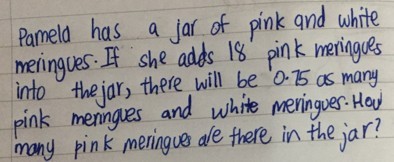 Pamela has a jar of pink and white
meringues. If she adds 18 pink meringues
into the jar, there will be 0.75 as many
pink meringues and white meringues. How
many pink meringues are there in the jar?